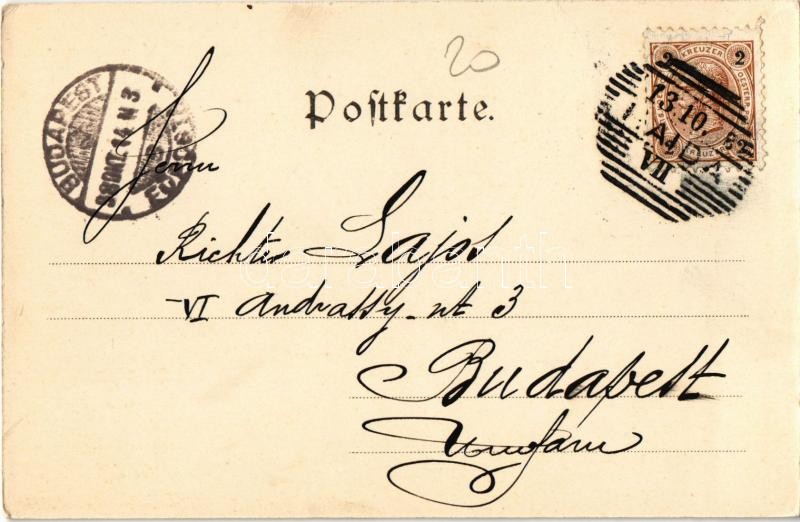 20
2 KREUZER 2
Postkarte.
BUDAPEST
98 OKT. 14 N 3
13.10.
HAIDA
VII
Herrn
Richter Lajos
VI Andrassy-ut 3
Budapest
Ungarn
darabanth